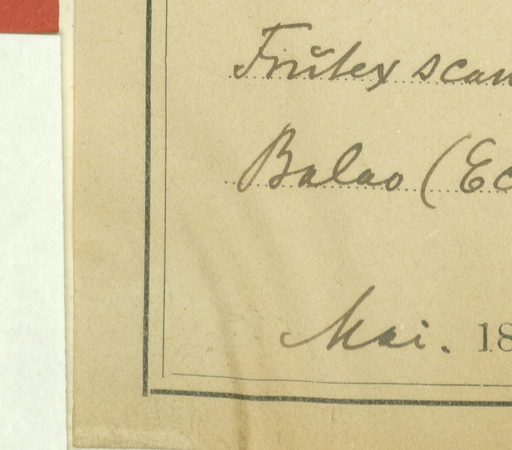 Frŭtex scan
Balao (Ec
Mai. 18